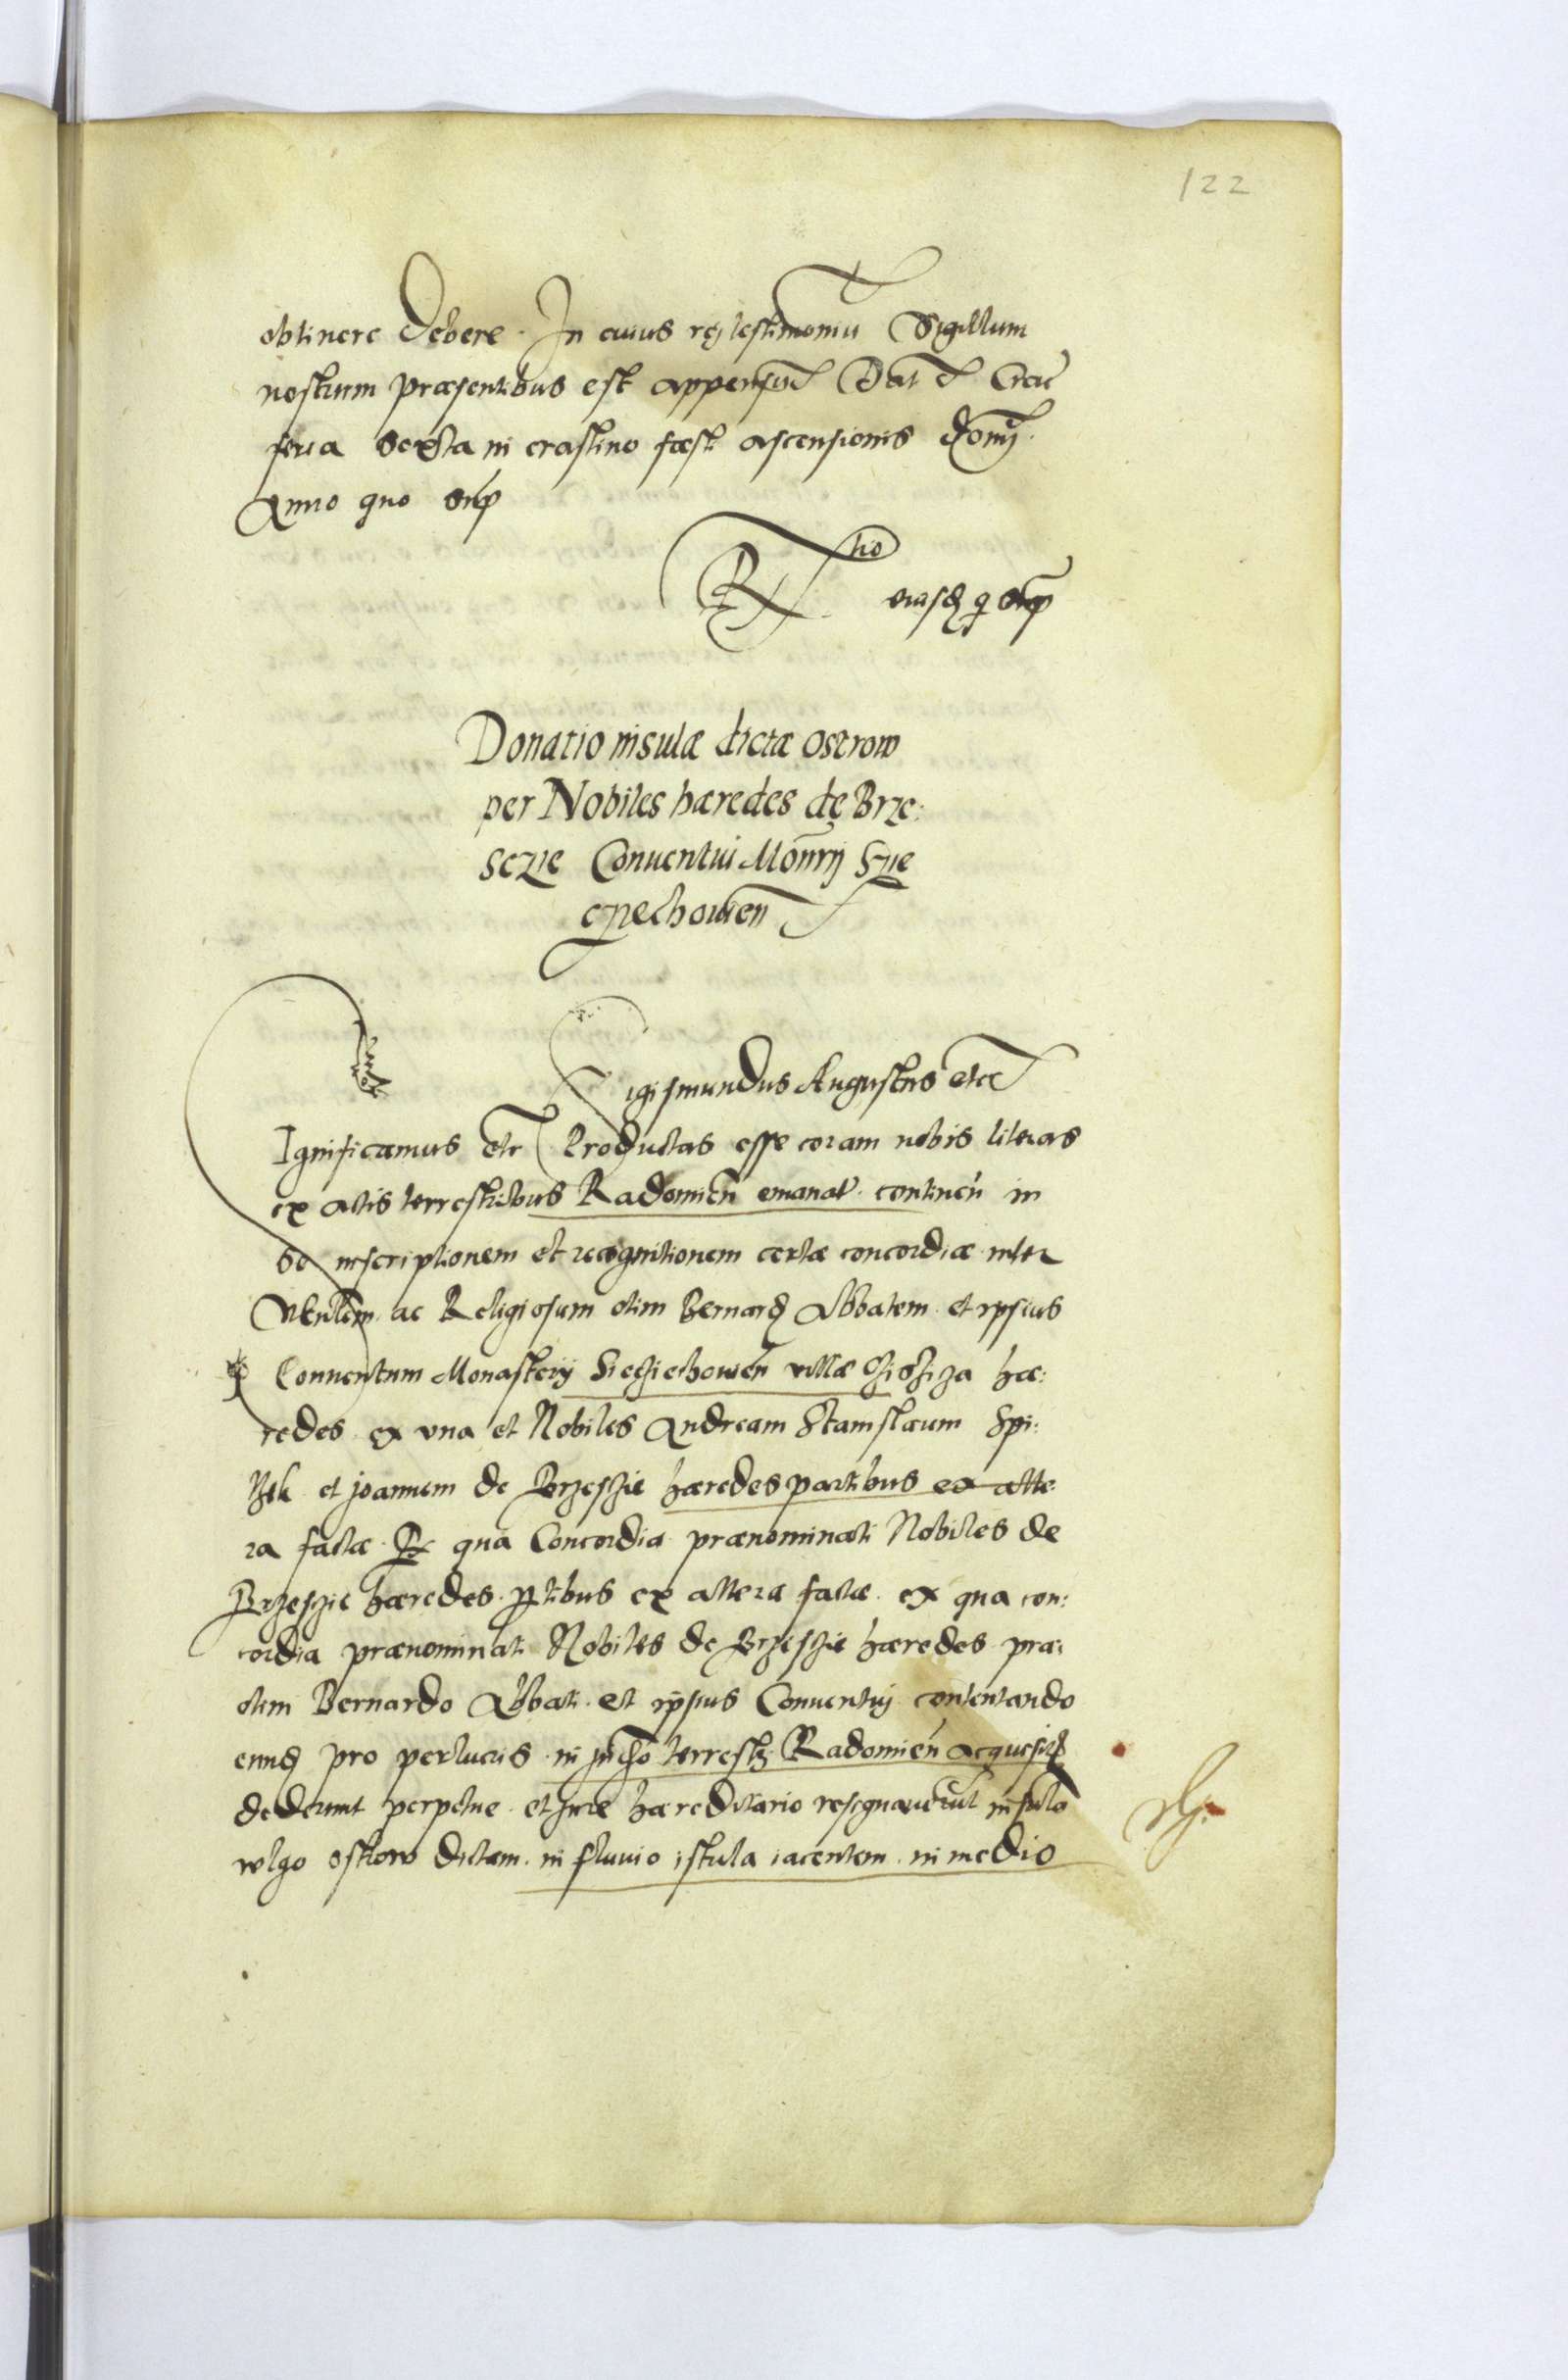 122
obtinere debere. In cuius rej testimoniū Sigillum
nostrum præsentibus est appensū Dat Crac
feria sexta in crastino fæsti ascensionis domj
Anno quo sup
R tio eiusd q sup
Donatio insulæ dictæ ostrow
per Nobiles hæredes de Brze:
sczie Conuentui Monrij Szie
cziechowien
Sigismundus Augustus etc
Ignificamus etc Productas esse coram nobis literas
ex actis terrestribus Radomien emanat. continen in
se inscriptionem et recognitionem certæ concordiæ inter
Ventem ac Religiosum olim Bernard Abbatem et ipsius
Conuentum Monasterij Sieciechowien villæ hæ:
redes ex vna et Nobiles Andream Stanislaum Spi:
et joannem de Brzeszie hæredes partibus ex alte
ra factæ Ex qua Concordia prænominati Nobiles de
Brzeszie hæredes ptibus ex altera factæ ex qua con:
cordia prænominati Nobiles de Brzeszie hæredes præ:
olim Bernardo Abbati et ipsius Conuentuj contentando
eund pro perlucris in judicio terrestrj Radomien acquesit
dederunt perpetue et jure hæreditario resignauerunt insula
wlgo ostrow dictam in fluuio istula iacentem in medio